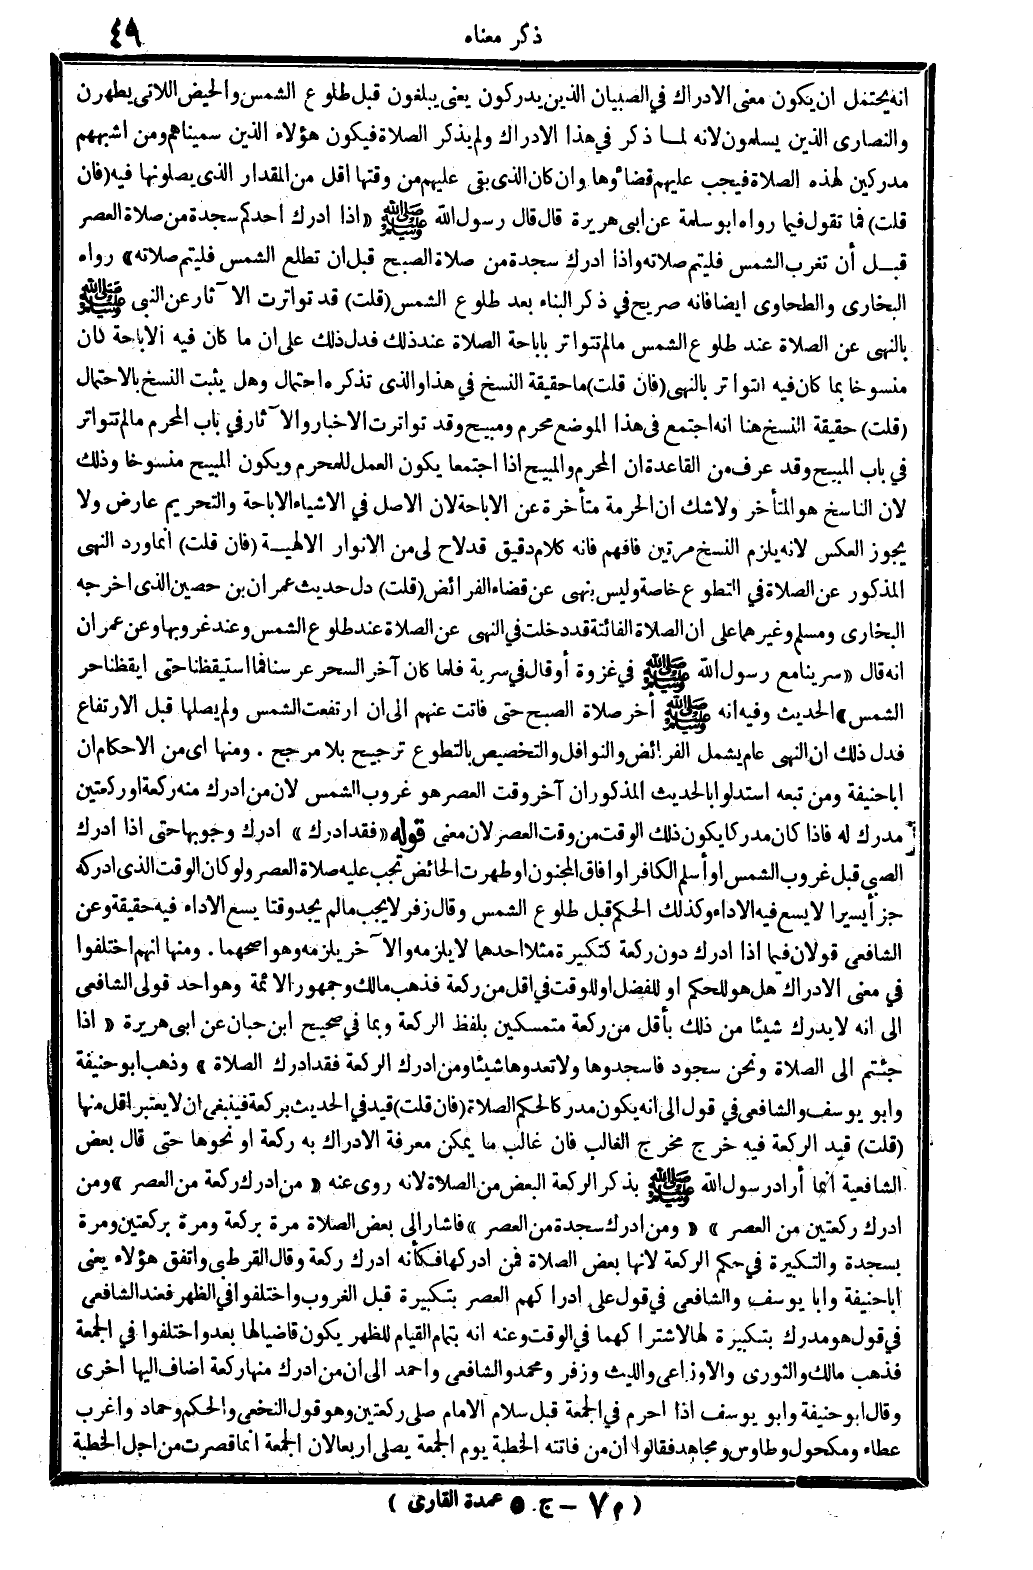 ٤٩
ذكر معناه
انه يحتمل ان يكون معنى الادراك في الصبيان الذين يدركون يعنى يبلغون قبل طلوع الشمس والحيض اللاتى يطهرن
والنصارى الذين يسلمون لانه لما ذكر في هذا الادراك ولم يذكر الصلاة فيكون هؤلاء الذين سميناهم ومن اشبههم
مدركين لهذه الصلاة فيجب عليهم قضاؤها وان كان الذى بقى عليهم من وقتها اقل من المقدار الذى يصلونها فيه (فان
قلت) فما تقول فيما رواه ابو سلمة عن ابى هريرة قال قال رسول الله ﷺ «اذا ادرك احدكم سجدة من صلاة العصر
قبل أن تغرب الشمس فليتم صلاته واذا ادرك سجدة من صلاة الصبح قبل ان تطلع الشمس فليتم صلاته» رواه
البخارى والطحاوى ايضا فانه صريح في ذكر البناء بعد طلوع الشمس (قلت) قد تواترت الآثار عن النبى ﷺ
بالنهى عن الصلاة عند طلوع الشمس مالم تتواتر باباحة الصلاة عند ذلك فدل ذلك على ان ما كان فيه الاباحة كان
منسوخا بما كان فيه التواتر بالنهى (فان قلت) ما حقيقة النسخ في هذا والذى تذكره احتمال وهل يثبت النسخ بالاحتمال
(قلت) حقيقة النسخ هنا انه اجتمع فى هذا الموضع محرم ومبيح وقد تواترت الاخبار والآثار في باب المحرم مالم تتواتر
في باب المبيح وقد عرف من القاعدة ان المحرم والمبيح اذا اجتمعا يكون العمل للمحرم ويكون المبيح منسوخا وذلك
لان الناسخ هو المتأخر ولا شك ان الحرمة متأخرة عن الاباحة لان الاصل في الاشياء الاباحة والتحريم عارض ولا
يجوز العكس لانه يلزم النسخ مرتين فافهم فانه كلام دقيق قد لاح لى من الانوار الالهية (فان قلت) انما ورد النهى
المذكور عن الصلاة في التطوع خاصة وليس بنهى عن قضاء الفرائض (قلت) دل حديث عمران بن حصين الذى اخرجه
البخارى ومسلم وغيرهما على ان الصلاة الفائتة قد دخلت في النهى عن الصلاة عند طلوع الشمس وعند غروبها وعن عمران
انه قال «سرينا مع رسول الله ﷺ في غزوة أو قال في سرية فلما كان آخر السحر عرسنا فما استيقظنا حتى ايقظنا حر
الشمس» الحديث وفيه انه ﷺ أخر صلاة الصبح حتى فاتت عنهم الى ان ارتفعت الشمس ولم يصلها قبل الارتفاع
فدل ذلك ان النهى عام يشمل الفرائض والنوافل والتخصيص بالتطوع ترجيح بلا مرجح . ومنها اى من الاحكام ان
ابا حنيفة ومن تبعه استدلوا بالحديث المذكور ان آخر وقت العصر هو غروب الشمس لان من ادرك منه ركعة او ركعتين
مدرك له فاذا كان مدركا يكون ذلك الوقت من وقت العصر لان معنى قوله «فقد ادرك» ادرك وجوبها حتى اذا ادرك
الصبي قبل غروب الشمس او أسلم الكافر او افاق المجنون او طهرت الحائض تجب عليه صلاة العصر ولو كان الوقت الذى ادركه
جزأ يسيرا لا يسع فيه الاداء وكذلك الحكم قبل طلوع الشمس وقال زفر لا يجب مالم يجد وقتا يسع الاداء فيه حقيقة وعن
الشافعى قولان فيما اذا ادرك دون ركعة كتكبيرة مثلا احدهما لا يلزمه والآخر يلزمه وهو اصحهما . ومنها انهم اختلفوا
في معنى الادراك هل هو للحكم او للفضل او للوقت في اقل من ركعة فذهب مالك وجمهور الائمة وهو احد قولى الشافعى
الى انه لا يدرك شيئا من ذلك بأقل من ركعة متمسكين بلفظ الركعة وبما في صحيح ابن حبان عن ابى هريرة «اذا
جئتم الى الصلاة ونحن سجود فاسجدوها ولا تعدوها شيئا ومن ادرك الركعة فقد ادرك الصلاة» وذهب ابو حنيفة
وابو يوسف والشافعى في قول الى انه يكون مدركا لحكم الصلاة (فان قلت) قيد في الحديث بركعة فينبغى ان لا يعتبر اقل منها
(قلت) قيد الركعة فيه خرج مخرج الغالب فان غالب ما يمكن معرفة الادراك به ركعة او نحوها حتى قال بعض
الشافعية انما أراد رسول الله ﷺ بذكر الركعة البعض من الصلاة لانه روى عنه «من ادرك ركعة من العصر» ومن
ادرك ركعتين من العصر» «ومن ادرك سجدة من العصر» فاشار الى بعض الصلاة مرة بركعة ومرة بركعتين ومرة
بسجدة والتكبيرة في حكم الركعة لانها بعض الصلاة فمن ادركها فكأنه ادرك ركعة وقال القرطبى واتفق هؤلاء يعنى
ابا حنيفة وابا يوسف والشافعى في قول على ادراكهم العصر بتكبيرة قبل الغروب واختلفوا في الظهر فعند الشافعى
في قول هو مدرك بتكبيرة لها لاشتراكهما في الوقت وعنه انه بتمام القيام للظهر يكون قاضيا لها بعد واختلفوا في الجمعة
فذهب مالك والثورى والاوزاعى والليث وزفر ومحمد والشافعى واحمد الى ان من ادرك منها ركعة اضاف اليها اخرى
وقال ابو حنيفة وابو يوسف اذا احرم في الجمعة قبل سلام الامام صلى ركعتين وهو قول النخعى والحكم وحماد واغرب
عطاء ومكحول وطاوس ومجاهد فقالوا ان من فاتته الخطبة يوم الجمعة يصلى اربعا لان الجمعة انما قصرت من اجل الخطبة
(م ٧ – ج ٥ عمدة القارى)